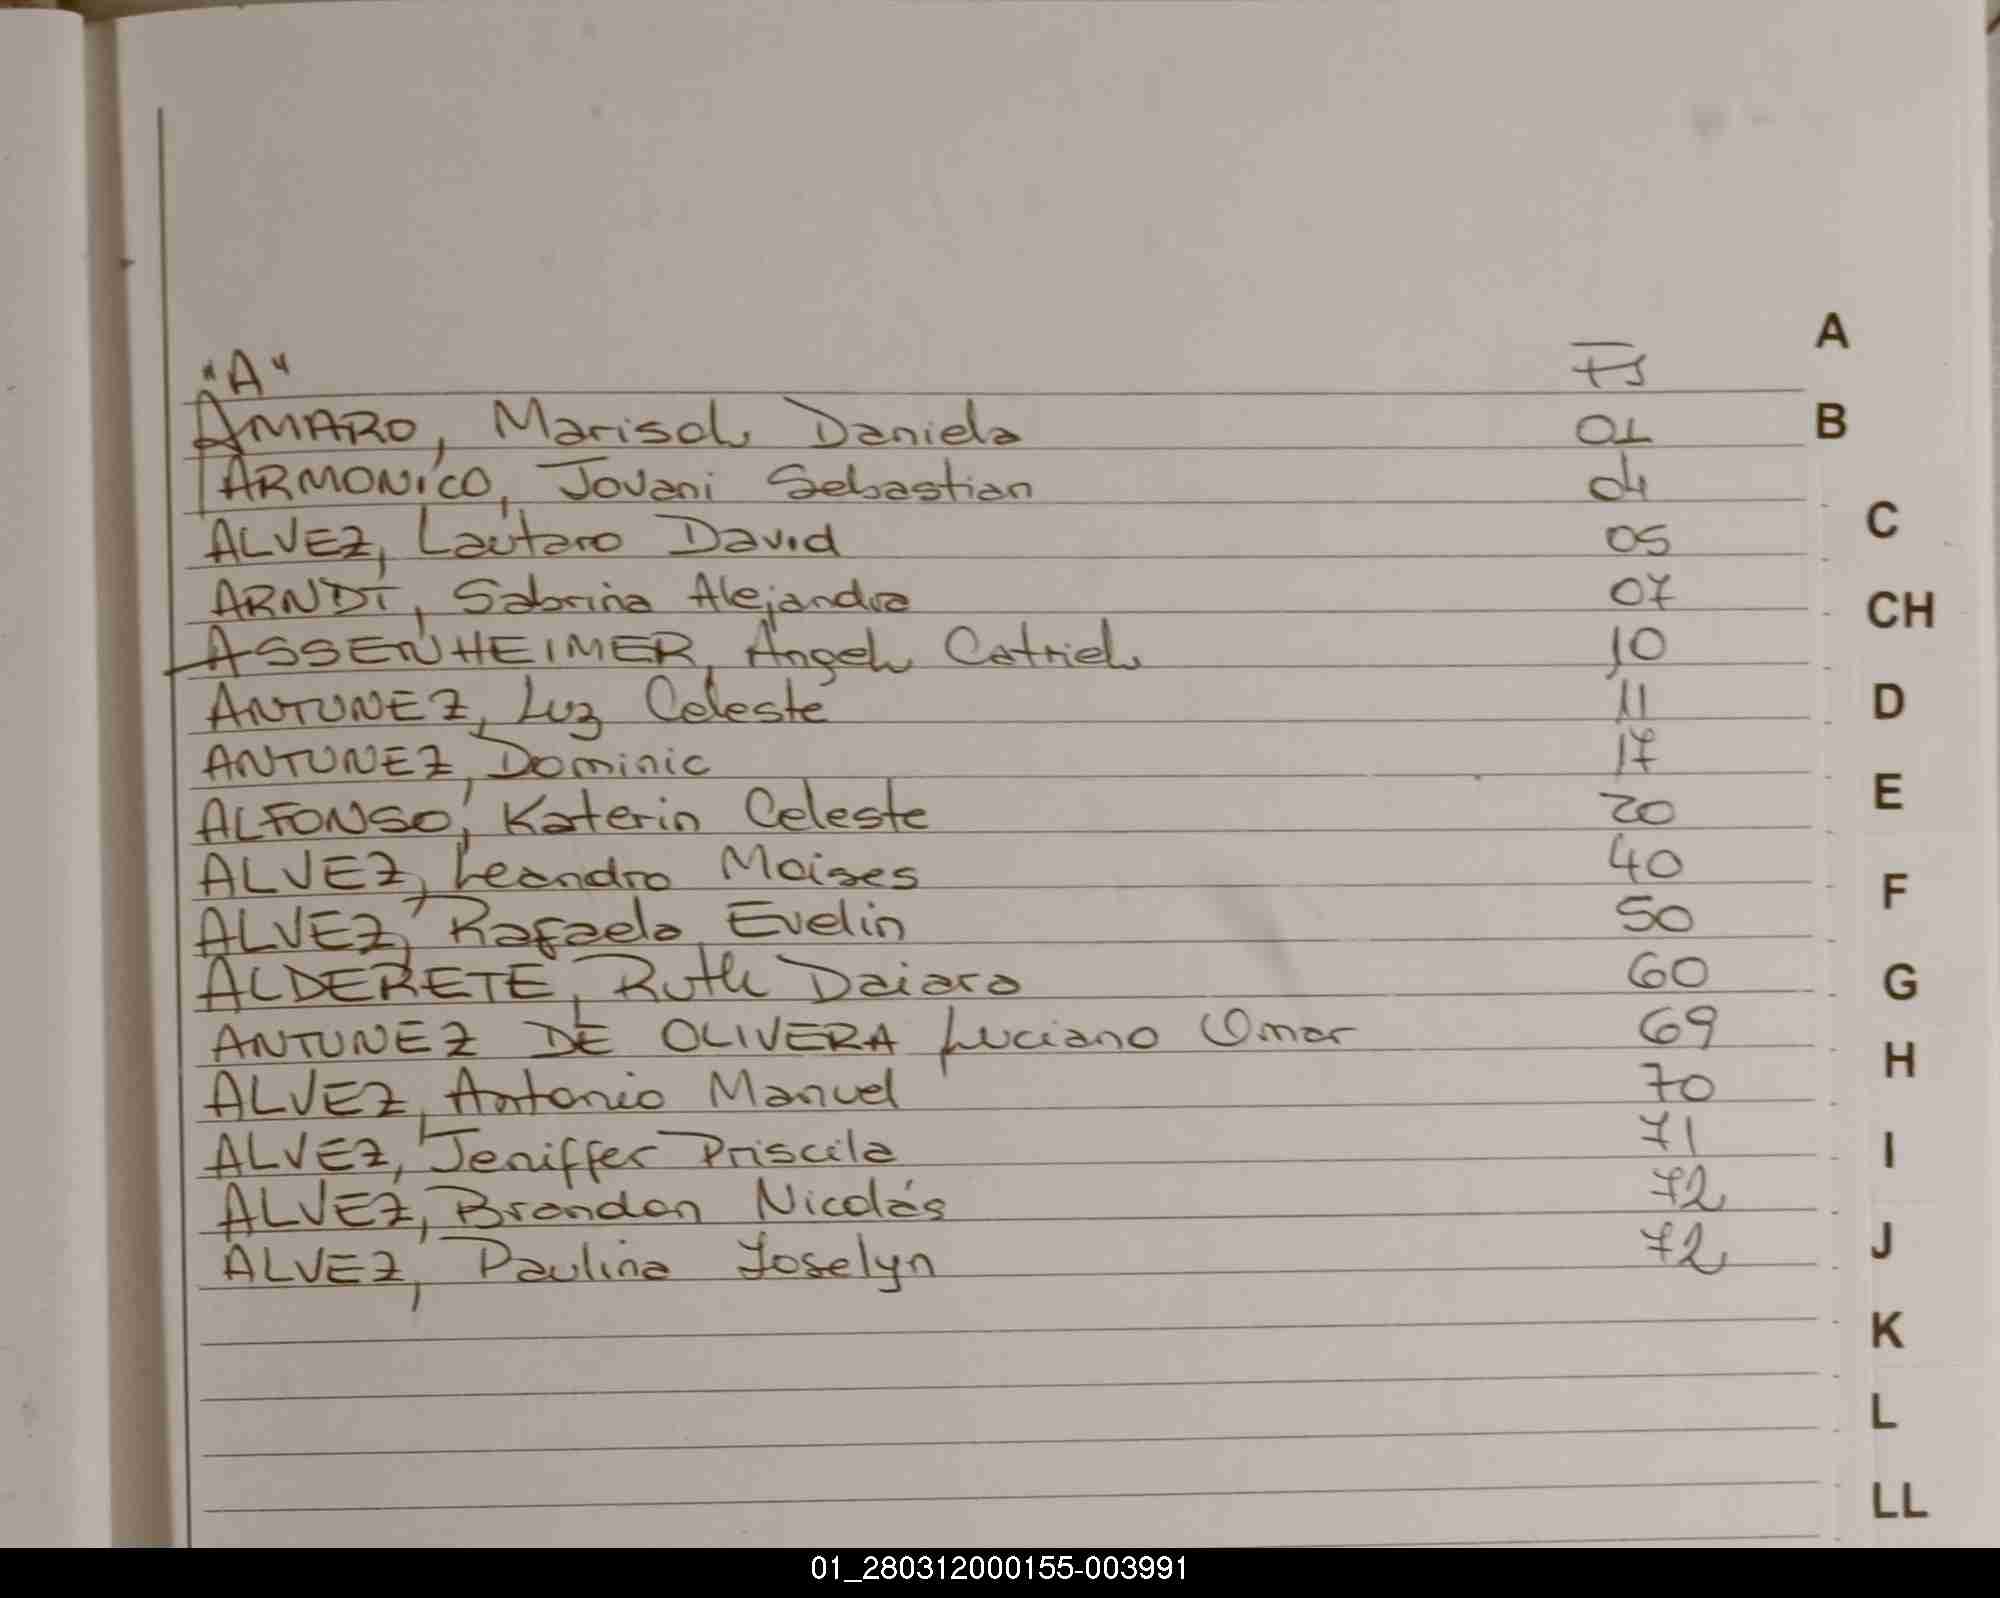 "A" Fs
AMARO, Marisol Daniela 01
ARMONICO, Jovani Sebastian 04
ALVEZ, Lautaro David 05
ARNDT, Sabrina Alejandra 07
ASSENHEIMER, Angel Catriel 10
ANTUNEZ, Luz Celeste 11
ANTUNEZ, Dominic 17
ALFONSO, Katerin Celeste 20
ALVEZ, Leandro Moises 40
ALVEZ, Rafaela Evelin 50
ALDERETE, Ruth Daiara 60
ANTUNEZ DE OLIVERA Luciano Omar 69
ALVEZ, Antonio Manuel 70
ALVEZ, Jeniffer Priscila 71
ALVEZ, Brandon Nicolás 72
ALVEZ, Paulina Joselyn 72
A
B
C
CH
D
E
F
G
H
I
J
K
L
LL
01_280312000155-003991